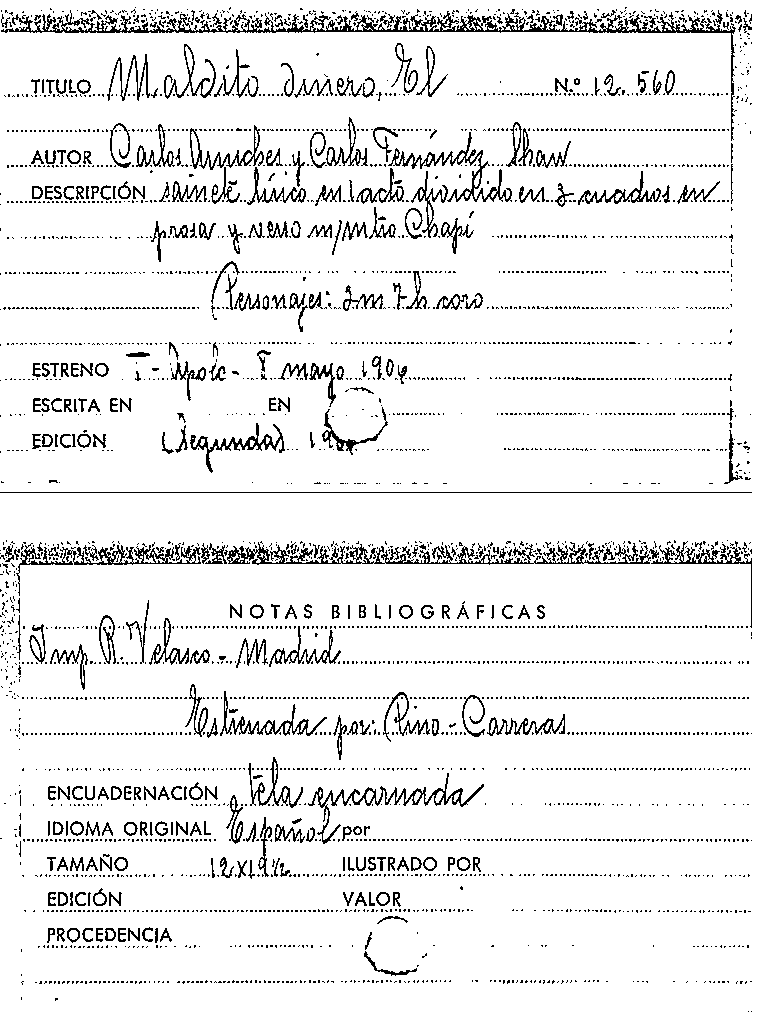 TITULO Maldito dinero, El N.º 12.560
AUTOR Carlos Arniches y Carlos Fernández Shaw
DESCRIPCIÓN sainete lírico en 1 acto dividido en 3 cuadros en
prosa y verso m/mtro Chapí
Personajes: 3m 7h coro
ESTRENO T- Apolo- mayo 1906
ESCRITA EN EN
EDICIÓN (Segunda)
NOTAS BIBLIOGRÁFICAS
Imp. R. Velasco - Madrid
Estrenada por: Pino - Carreras
ENCUADERNACIÓN tela encarnada
IDIOMA ORIGINAL Español por
TAMAÑO 12x19½ ILUSTRADO POR
EDICIÓN VALOR
PROCEDENCIA